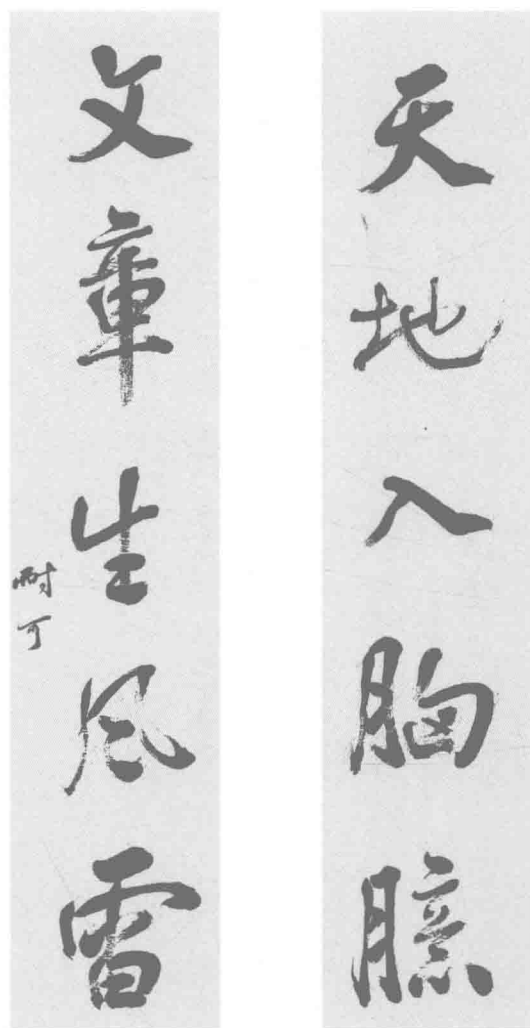 天地入胸臆
文章生风雷
耐可